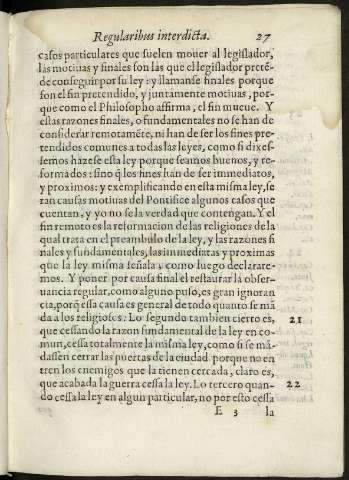 Regularibus interdicta. 27
casos particulares que suelen mouer al legislador,
las motiuas y finales son las que el legislador pretē-
de conseguir por su ley: y llamanse finales porque
son el fin pretendido, y juntamente motiuas, por-
que como el Philosopho affirma, el fin mueue. Y
estas razones finales, o fundamentales no se han de
considerar remotamēte, ni han de ser los fines pre-
tendidos comunes a todas las leyes, como si dixes-
semos hazese esta ley porque seamos buenos, y re-
formados: sino q̃ les fines han de ser immediatos,
y proximos: y exemplificando en esta misma ley, se
ran causas motiuas del Pontifice algunos casos que
cuentan, y yo no se la verdad que contengan. Y el
fin remoto es la reformacion de las religiones de la
qual trata en el preambulo de la ley, y las razones fi
nales y fundamentales, las immediatas y proximas
que la ley misma señala, como luego declarare-
mos. Y poner por causa final el restaurar la obser-
uancia regular, como alguno puso, es gran ignoran
cia, porq̃ essa causa es general de todo quanto se mā
da a los religiosos. Lo segundo tambien cierto es, 21
que cessando la razon fundamental de la ley en co-
mun, cessa totalmente la misma ley, como si se mā-
dassen cerrar las puertas de la ciudad porque no en
tren los enemigos que la tienen cercada, claro es,
que acabada la guerra cessa la ley. Lo tercero quan- 22
do cessa la ley en algun particular, no por esto cessa
E 3 la